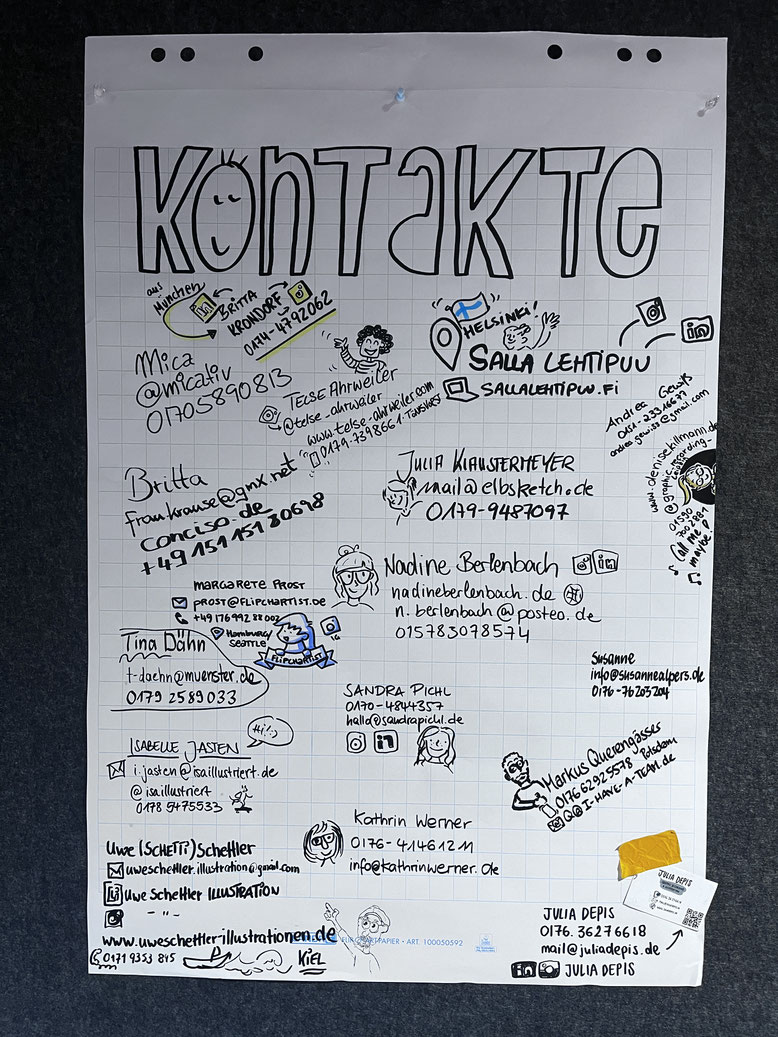 KONTAKTE
aus
MÜNCHEN
in
BRITTA
KRONDORF
0174-4792062
Mica
@micativ
01705890813
TELSE Ahrweiler
@telse_ahrweiler
www.telse-ahrweiler.com
0179.7398661
HELSINKI!
in
SALLA LEHTIPUU
SALLALEHTIPUU.FI
Andrea Gewiß
0151-23316677
andrea.gewiss@gmail.com
www.denisekillmann.de
@graphic.recording
01590
7002891
Call me
maybe!
Britta
frau.krause@gmx.net
conciso.de
+49 151 151 80698
JULIA KLAUSTERMEYER
mail@elbsketch.de
0179-9487097
Nadine Berlenbach
in
nadineberlenbach.de
n.berlenbach@posteo.de
015783078574
MARGARETE PROST
PROST@FLIPCHARTIST.DE
+49 176 992 88 002
Hamburg/
SEATTLE
IG
FLIPCHARTIST
Tina Dähn
t-daehn@muenster.de
0179 2589033
Susanne
info@susannealpers.de
0176-76203204
SANDRA PICHL
0170-4844357
hallo@sandrapichl.de
in
Hi! :-)
ISABELLE JASTEN
i.jasten@isaillustriert.de
@isaillustriert
0178 5475533
Markus Querengässer
0176 62925578 Potsdam
Q@I-HAVE-A-TEAM.de
Kathrin Werner
0176-41461211
info@kathrinwerner.de
Uwe (SCHETTI) Schettler
uweschettler.illustration@gmail.com
in Uwe Schettler ILLUSTRATION
- " -
www.uweschettler-illustrationen.de
0171 9353 845
KIEL
FLIPCHARTPAPIER • ART. 100050592
JULIA DEPIS
JULIA DEPIS
0176. 36276618
mail@juliadepis.de
in JULIA DEPIS